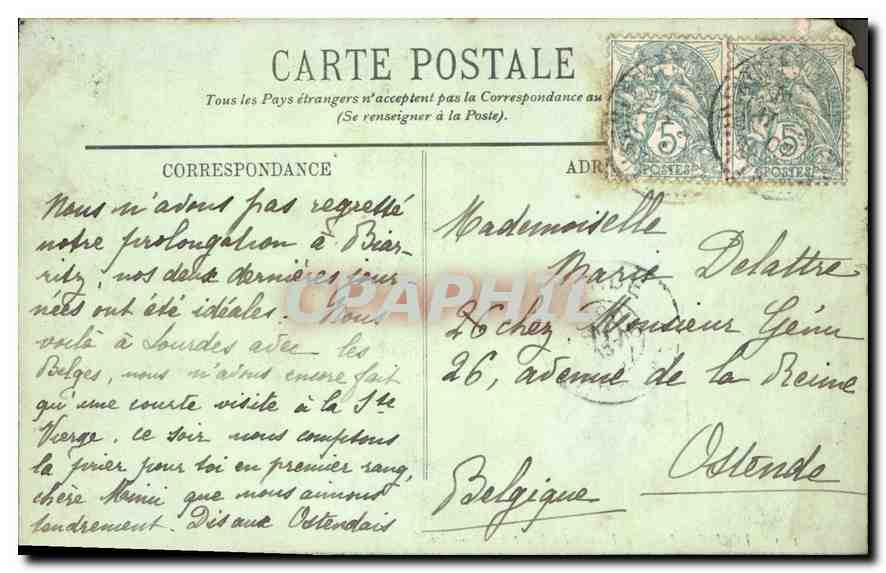 CARTE POSTALE
Tous les Pays étrangers n'acceptent pas la Correspondance au
(Se renseigner à la Poste).
CORRESPONDANCE
Nous n'avons pas regretté
notre prolongation à Biar-
ritz, nos deux dernières jour
nées ont été idéales. Nous
voilà à Lourdes avec les
Belges, nous n'avons encore fait
qu'une courte visite à la Ste
Vierge. ce soir nous comptons
la prier pour toi en premier rang,
chère Mimi que nous aimons
tendrement. Dis aux Ostendais
ADR
5 POSTES
5 POSTES
Mademoiselle
Marie Delattre
26 chez Monsieur Génu
26, avenue de la Reine
Ostende
Belgique
CPAPHIL